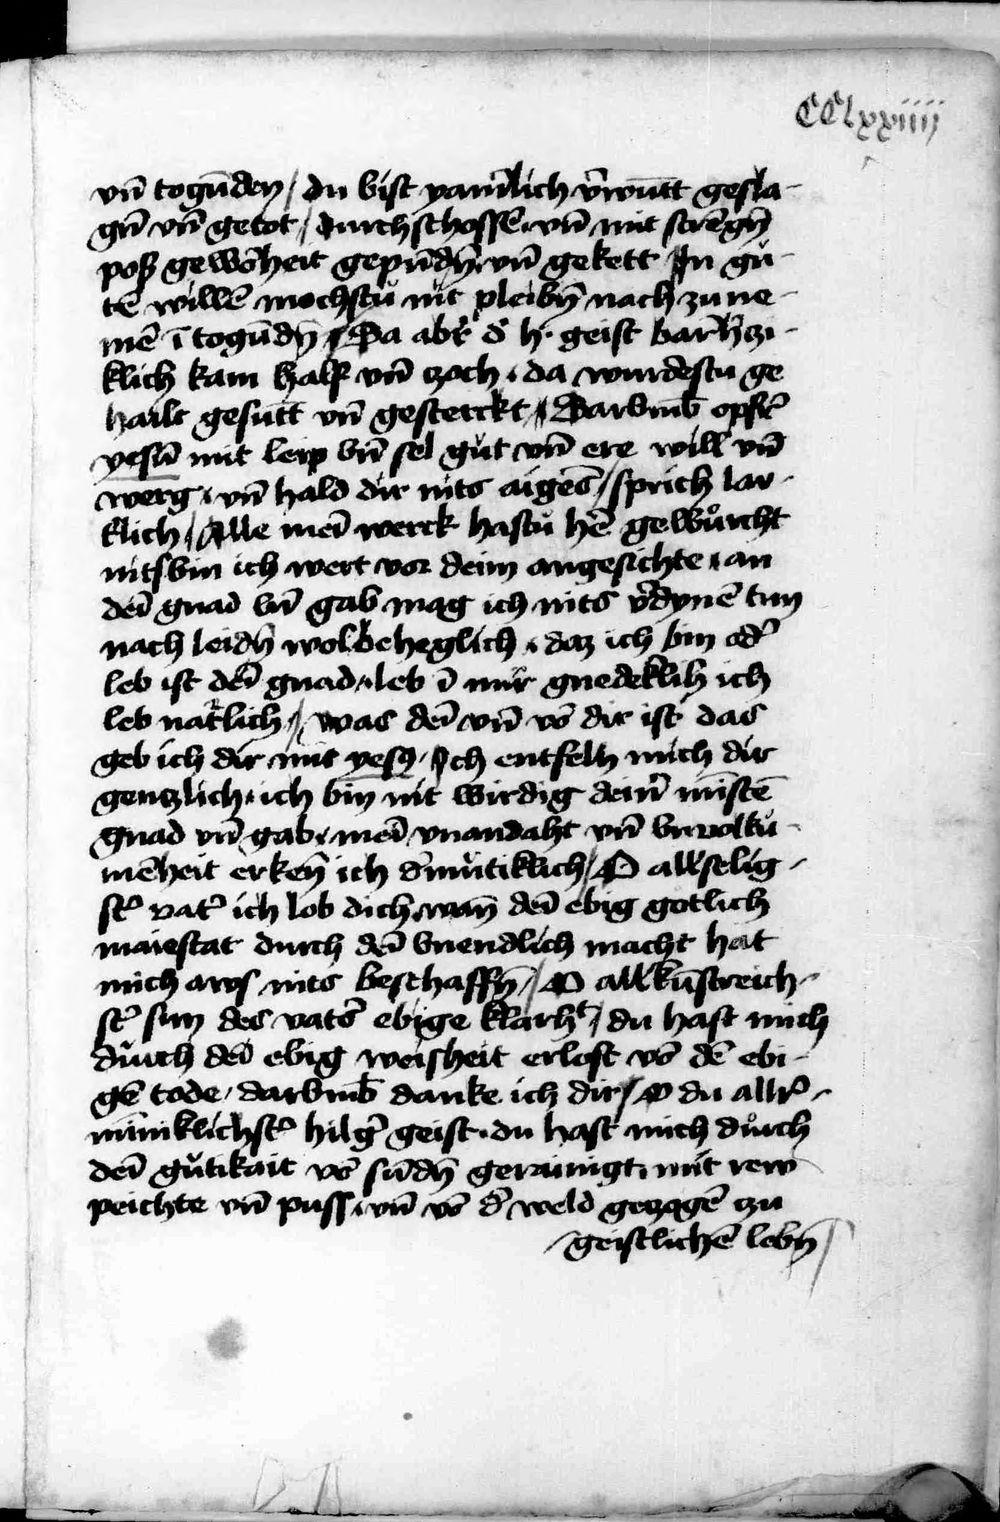 CClxxiiii
vn̄ togūden / du bist yam̄lich v̄wūtt gesla-
gn̄ vn̄ getot / durchschossē vn̄ mit strēgn̄
poß gewōheit gepūdn̄ vn̄ gekett In gů-
tē willē mochstu nit pleibn̄ nach zu ne-
mē ī togūdn̄ / Da abr̄ d' h. geist barh̄tzi-
klich kam half vn̄ zoch . da wurdestu ge
hailt gesūtt vn̄ gesterckt / Darvmb opfr̄
yesū mit leip vn̄ sel gůt vn̄ ere will vn̄
werg . vn̄ hald dir nits aigēs / sprich lar-
klich / Alle meī werck hastu hē gewůrcht
nits bin ich wert vor deim angesichte . an
deī gnad vn̄ gab mag ich nits v̄dynē tun
nach leidn̄ wolbeheglich . daz ich bin od'
leb ist deī gnad . leb ī mir gnedeklih ich
leb natr̄lich / was deī vn̄ vō dir ist das
geb ich dir mit yesu . Ich entfelh mich dir
gentzlich . ich bin nit wirdig dein̄ mīstē
gnad vn̄ gab . meī vnandaht vn̄ vnvolku-
mēheit erken̄ ich d̄můtiklich / O allselig-
st' vat' ich lob dich wan̄ deī ebig gotlich
maiestat durch deī vnendlich macht hat
mich aws nits beschaffn̄ / O allkūstreich-
st' sun des vat's ebige klarht / du hast mich
důrch deī ebig weisheit erlost vō dē ebi-
gē tode / darvmb danke ich dir / O du allr'-
miniklichst' hilg' geist . du hast mich důrch
deī gůtikait vō sūdn̄ gerainigt mit rew
peichte vn̄ puss . vn̄ vō d' weld gezogē zu
geistlichē lebn̄ /